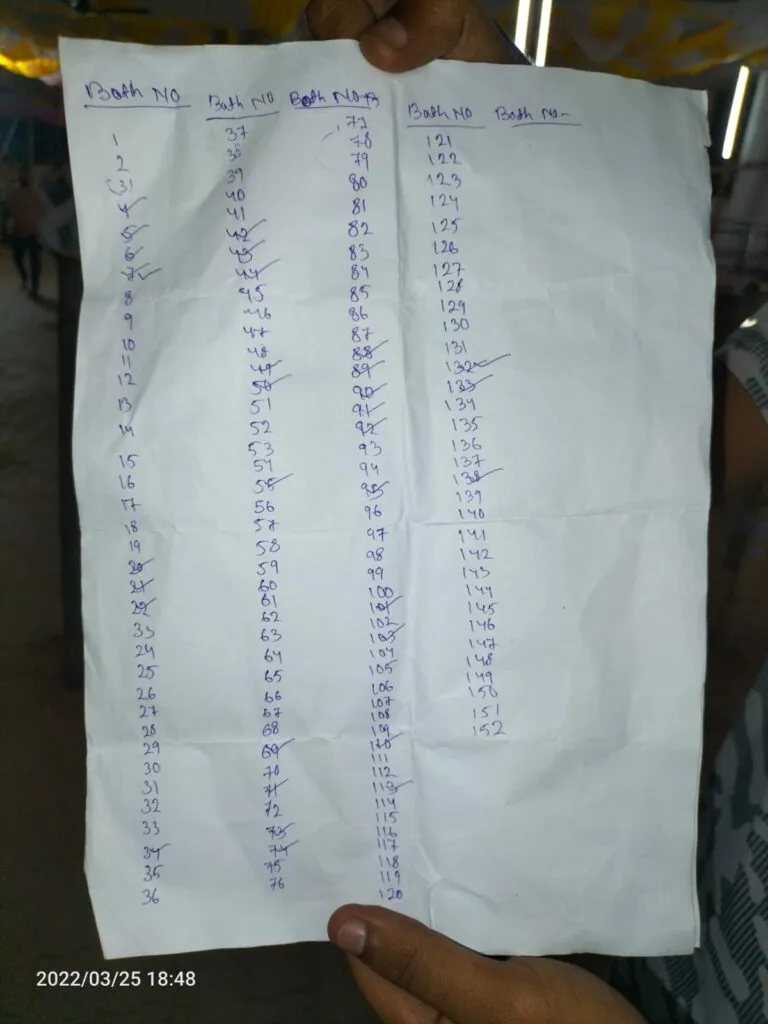 Bath NO
1
2
(3)
4
5
6
7
8
9
10
11
12
13
14
15
16
17
18
19
20
21
22
33
24
25
26
27
28
29
30
31
32
33
34
35
36
Bath NO
37
38
39
40
41
42
43
44
45
46
47
48
49
50
51
52
53
54
55
56
57
58
59
60
61
62
63
64
65
66
67
68
69
70
71
72
73
74
75
76
Bath No
77
78
79
80
81
82
83
84
85
86
87
88
89
90
91
92
93
94
95
96
97
98
99
100
101
102
103
104
105
106
107
108
109
110
111
112
113
114
115
116
117
118
119
120
Bath NO
121
122
123
124
125
126
127
128
129
130
131
132
133
134
135
136
137
138
139
140
141
142
143
144
145
146
147
148
149
150
151
152
Bath No-
2022/03/25 18:48